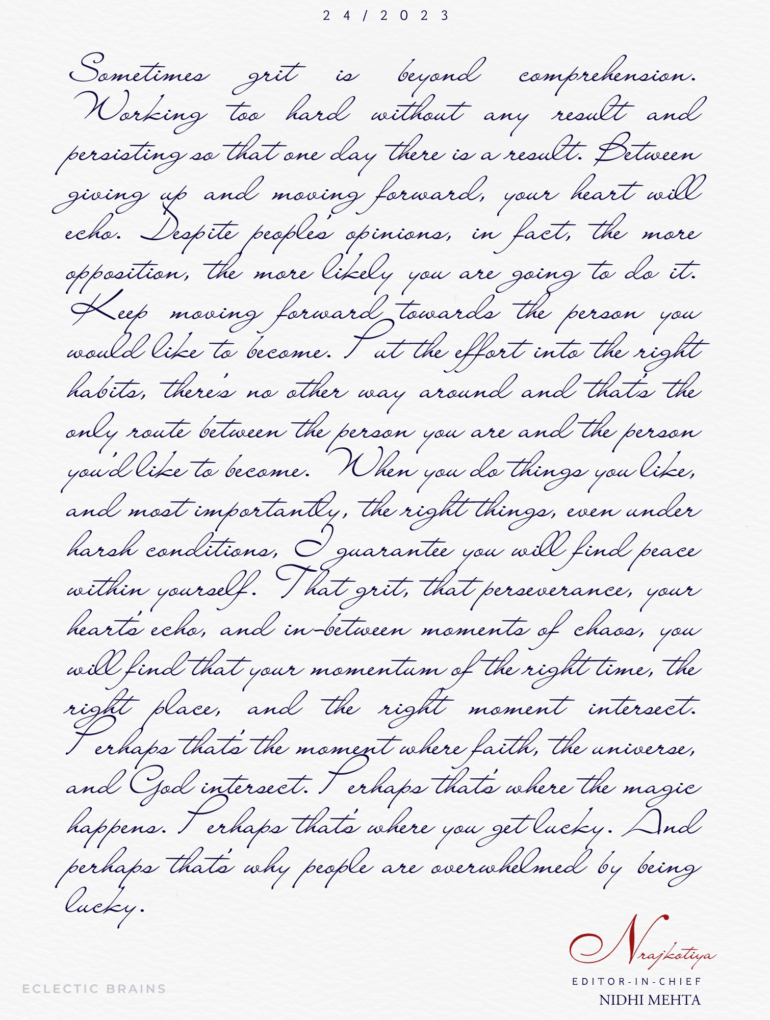 24/2023
Sometimes grit is beyond comprehension.
Working too hard without any result and
persisting so that one day there is a result. Between
giving up and moving forward, your heart will
echo. Despite people's opinions, in fact, the more
opposition, the more likely you are going to do it.
Keep moving forward towards the person you
would like to become. Put the effort into the right
habits, there's no other way around and that's the
only route between the person you are and the person
you'd like to become. When you do things you like,
and most importantly, the right things, even under
harsh conditions, I guarantee you will find peace
within yourself. That grit, that perseverance, your
heart's echo, and in-between moments of chaos, you
will find that your momentum of the right time, the
right place, and the right moment intersect.
Perhaps that's the moment where faith, the universe,
and God intersect. Perhaps that's where the magic
happens. Perhaps that's where you get lucky. And
perhaps that's why people are overwhelmed by being
lucky.
Nrajkotiya
EDITOR-IN-CHIEF
NIDHI MEHTA
ECLECTIC BRAINS